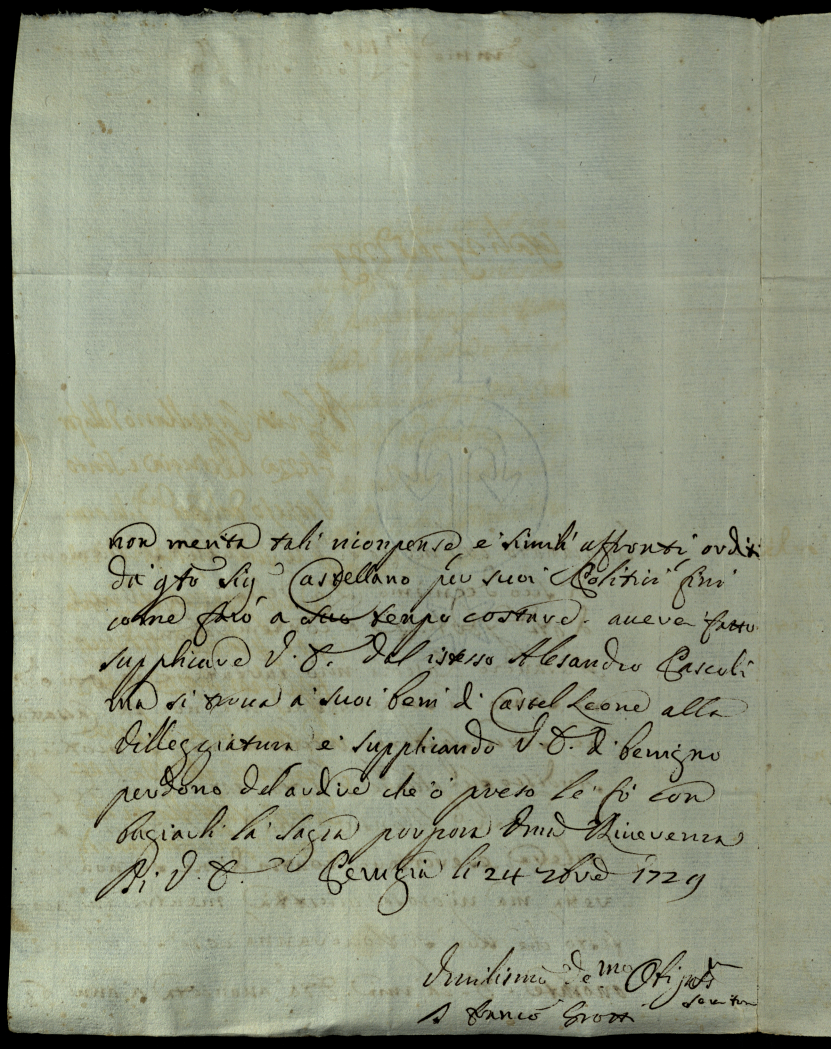 non merita tali ricompense e simili affronti orditi
da qto Sig Castellano per suoi Politici fini
come farò a suo tempo costare. aueva fatto
supplicare V. E. dal istesso Alesandro Pascoli
ma si troua a suoi beni di Castel Leone alla
Villeggiatura e supplicando V. E. di benigno
perdono del ardire che o preso le fò con
bagiarli la sagra porpora Vma Riuerenza
Di V. E. Perugia li 24 9bre 1729
Vmilissimo De mo Obi
Seruitore
Franco Grotti